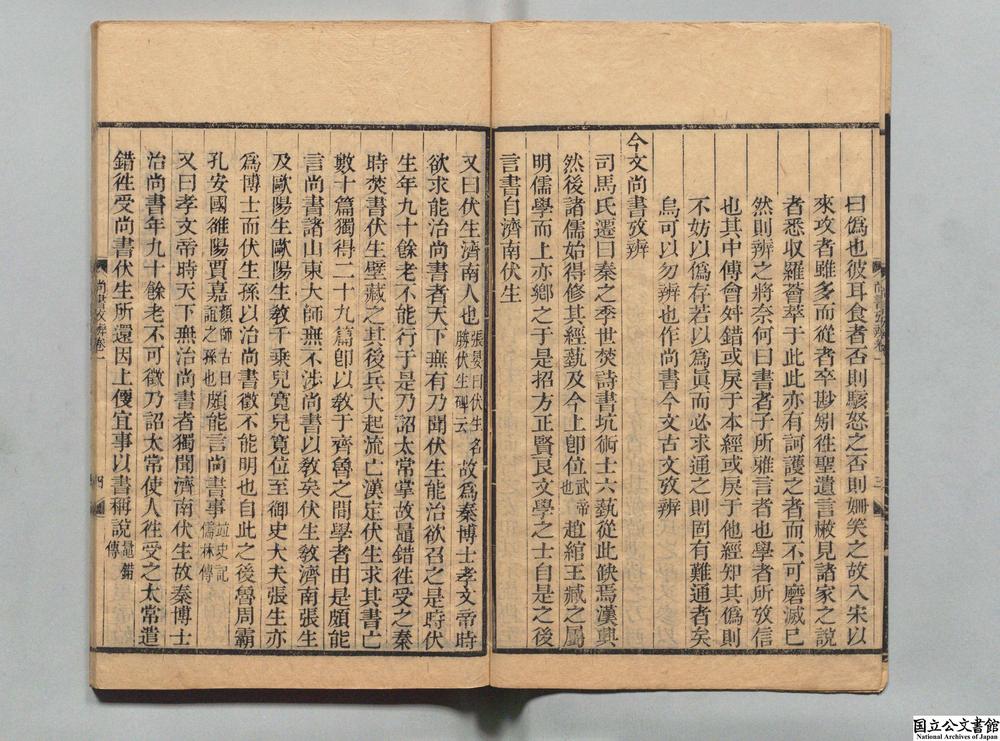 曰僞也彼耳食者否則駭怒之否則姍笑之故入宋以
來攻者雖多而從者卒尠矧徃聖遺言瞰見諸家之說
者悉収羅薈萃于此此亦有訶護之者而不可磨滅已
然則辨之將奈何曰書者子所雅言者也學者所攷信
也其中傅會舛錯或戾于本經或戾于他經知其僞則
不妨以僞存若以爲眞而必求通之則固有難通者矣
烏可以勿辨也作尚書今文古文攷辨
今文尚書攷辨
司馬氏遷曰秦之季世焚詩書坑術士六藝從此缺焉漢興
然後諸儒始得修其經藝及今上卽位武帝也趙綰王臧之屬
明儒學而上亦鄉之于是招方正賢良文學之士自是之後
言書自濟南伏生
又曰伏生濟南人也張晏曰伏生名勝伏生碑云故爲秦博士孝文帝時
欲求能治尚書者天下無有乃聞伏生能治欲召之是時伏
生年九十餘老不能行于是乃詔太常掌故鼂錯徃受之秦
時焚書伏生壁藏之其後兵大起流亡漢定伏生求其書亡
數十篇獨得二十九篇卽以敎于齊魯之間學者由是頗能
言尚書諸山東大師無不涉尚書以敎矣伏生敎濟南張生
及歐陽生歐陽生敎千乘兒寬兒寬位至御史大夫張生亦
爲博士而伏生孫以治尚書徵不能明也自此之後魯周霸
孔安國雒陽賈嘉顏師古曰誼之孫也頗能言尚書事竝史記儒林傳
又曰孝文帝時天下無治尚書者獨聞濟南伏生故秦博士
治尚書年九十餘老不可徵乃詔太常使人徃受之太常遣
錯徃受尚書伏生所還因上便宜事以書稱說鼂錯傳
尚書攷辨卷一
三
尚書攷辨卷一
四
国立公文書館
National Archives of Japan